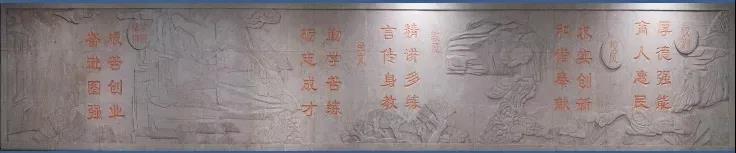 厚德强能
育人惠民
求实创新
和谐奉献
精讲多练
言传身教
勤学苦练
砺志成才
艰苦创业
奋进图强